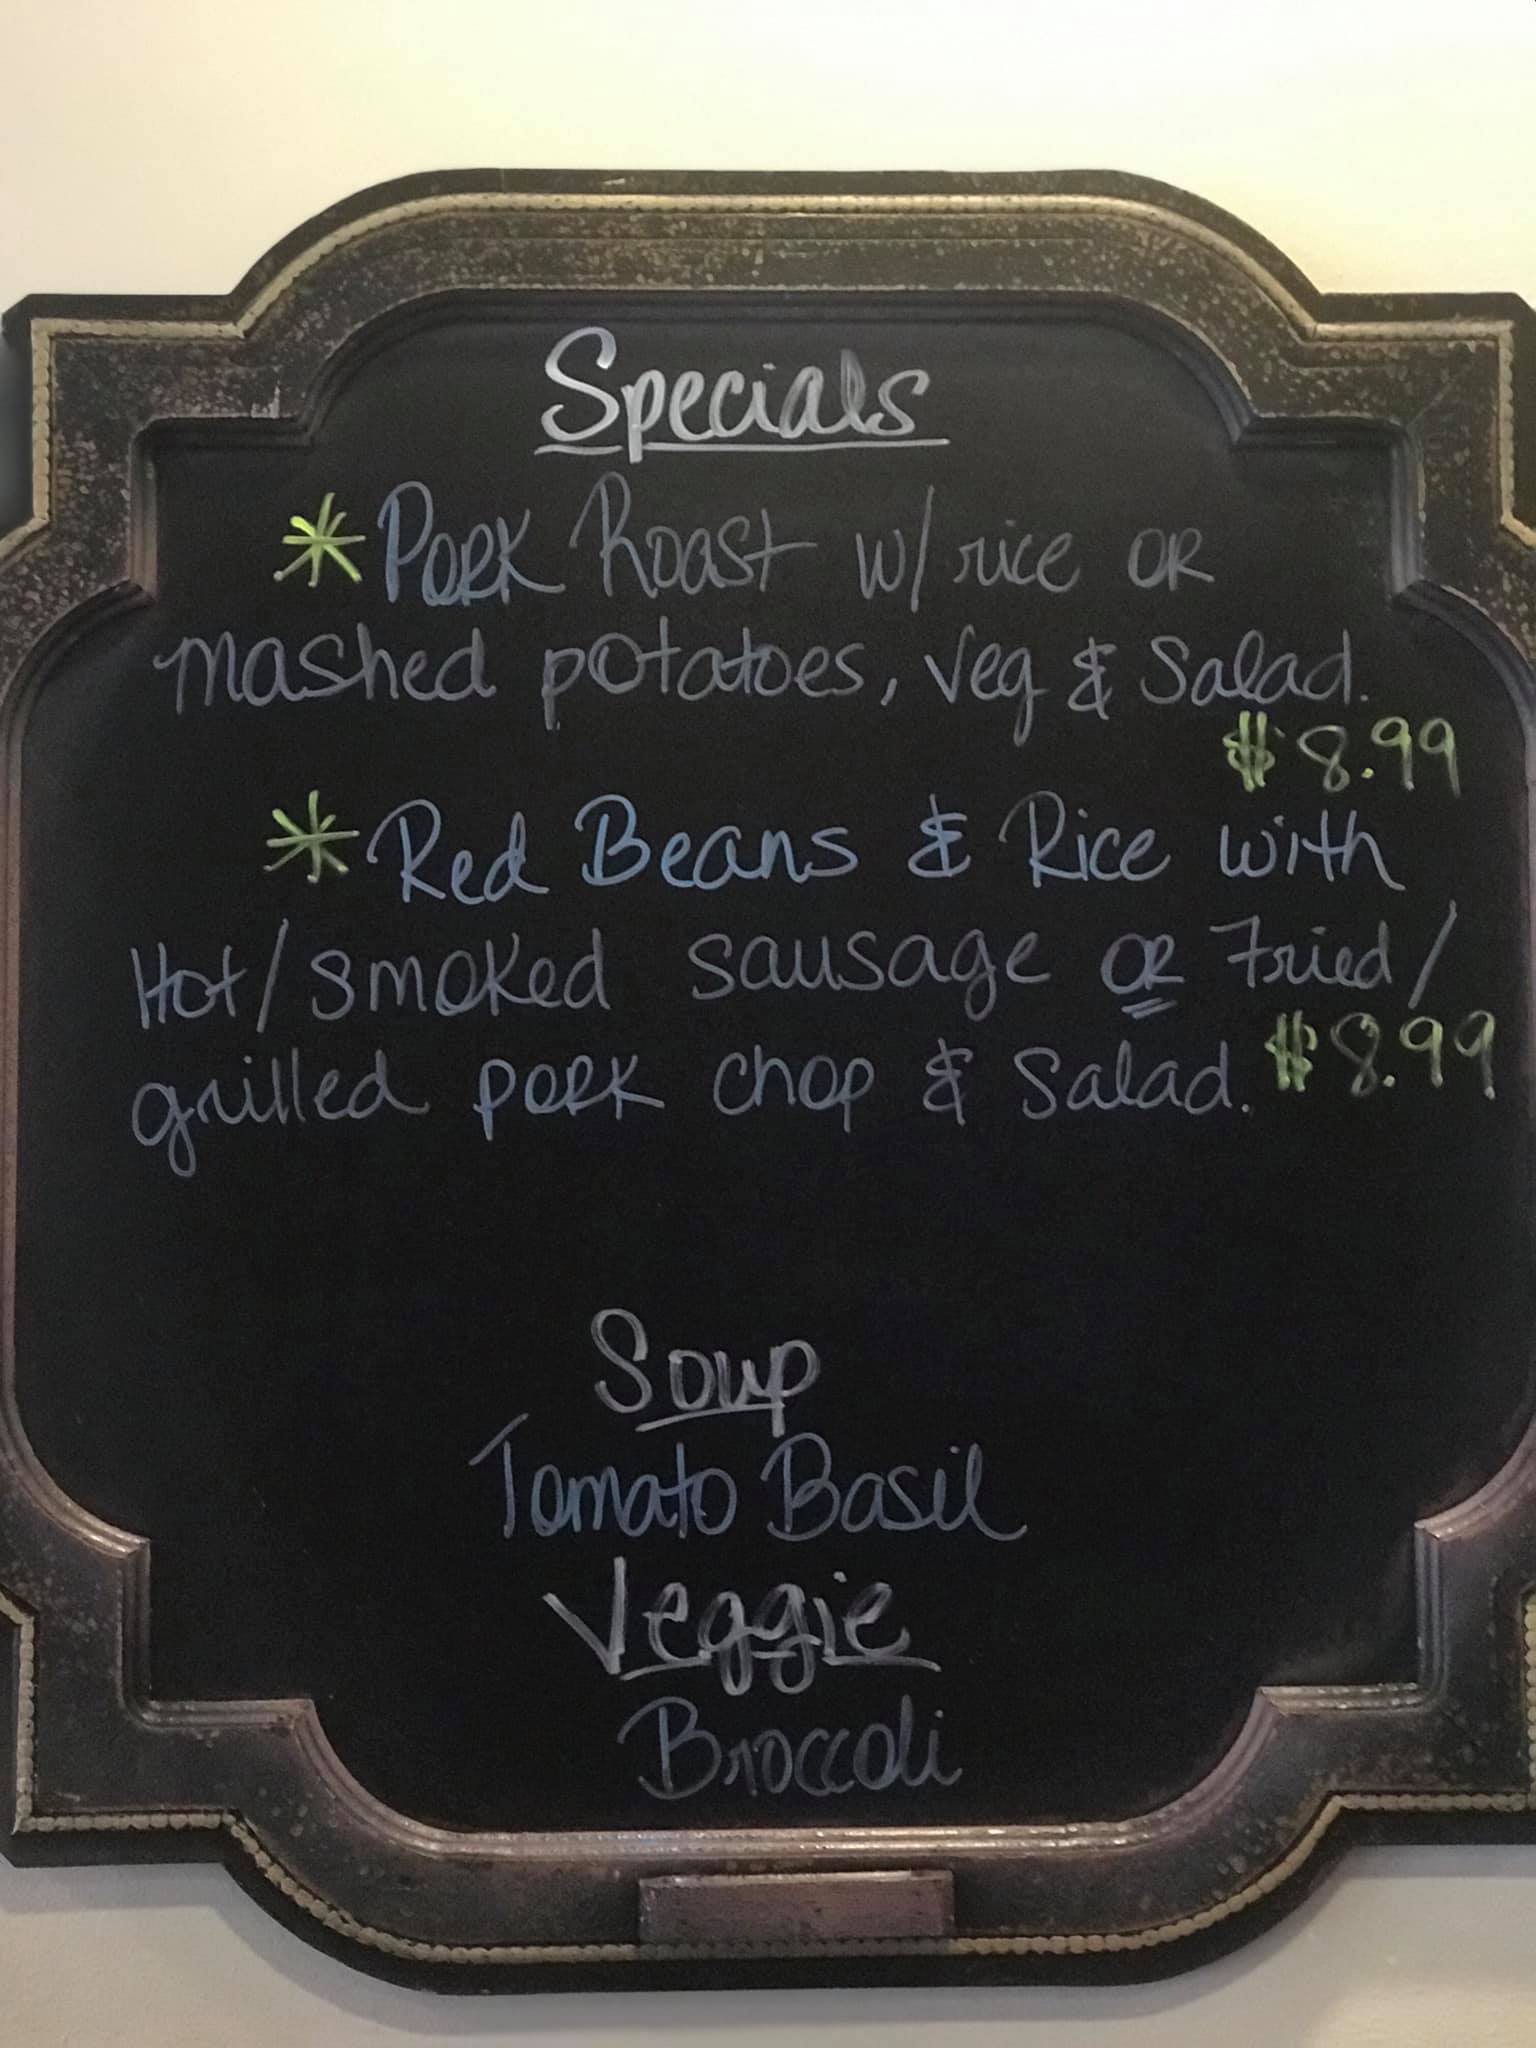 Specials
* Pork Roast w/ rice OR
mashed potatoes, veg & Salad.
$8.99
* Red Beans & Rice with
Hot/smoked sausage OR Fried/
grilled pork chop & Salad. $8.99
Soup
Tomato Basil
Veggie
Broccoli